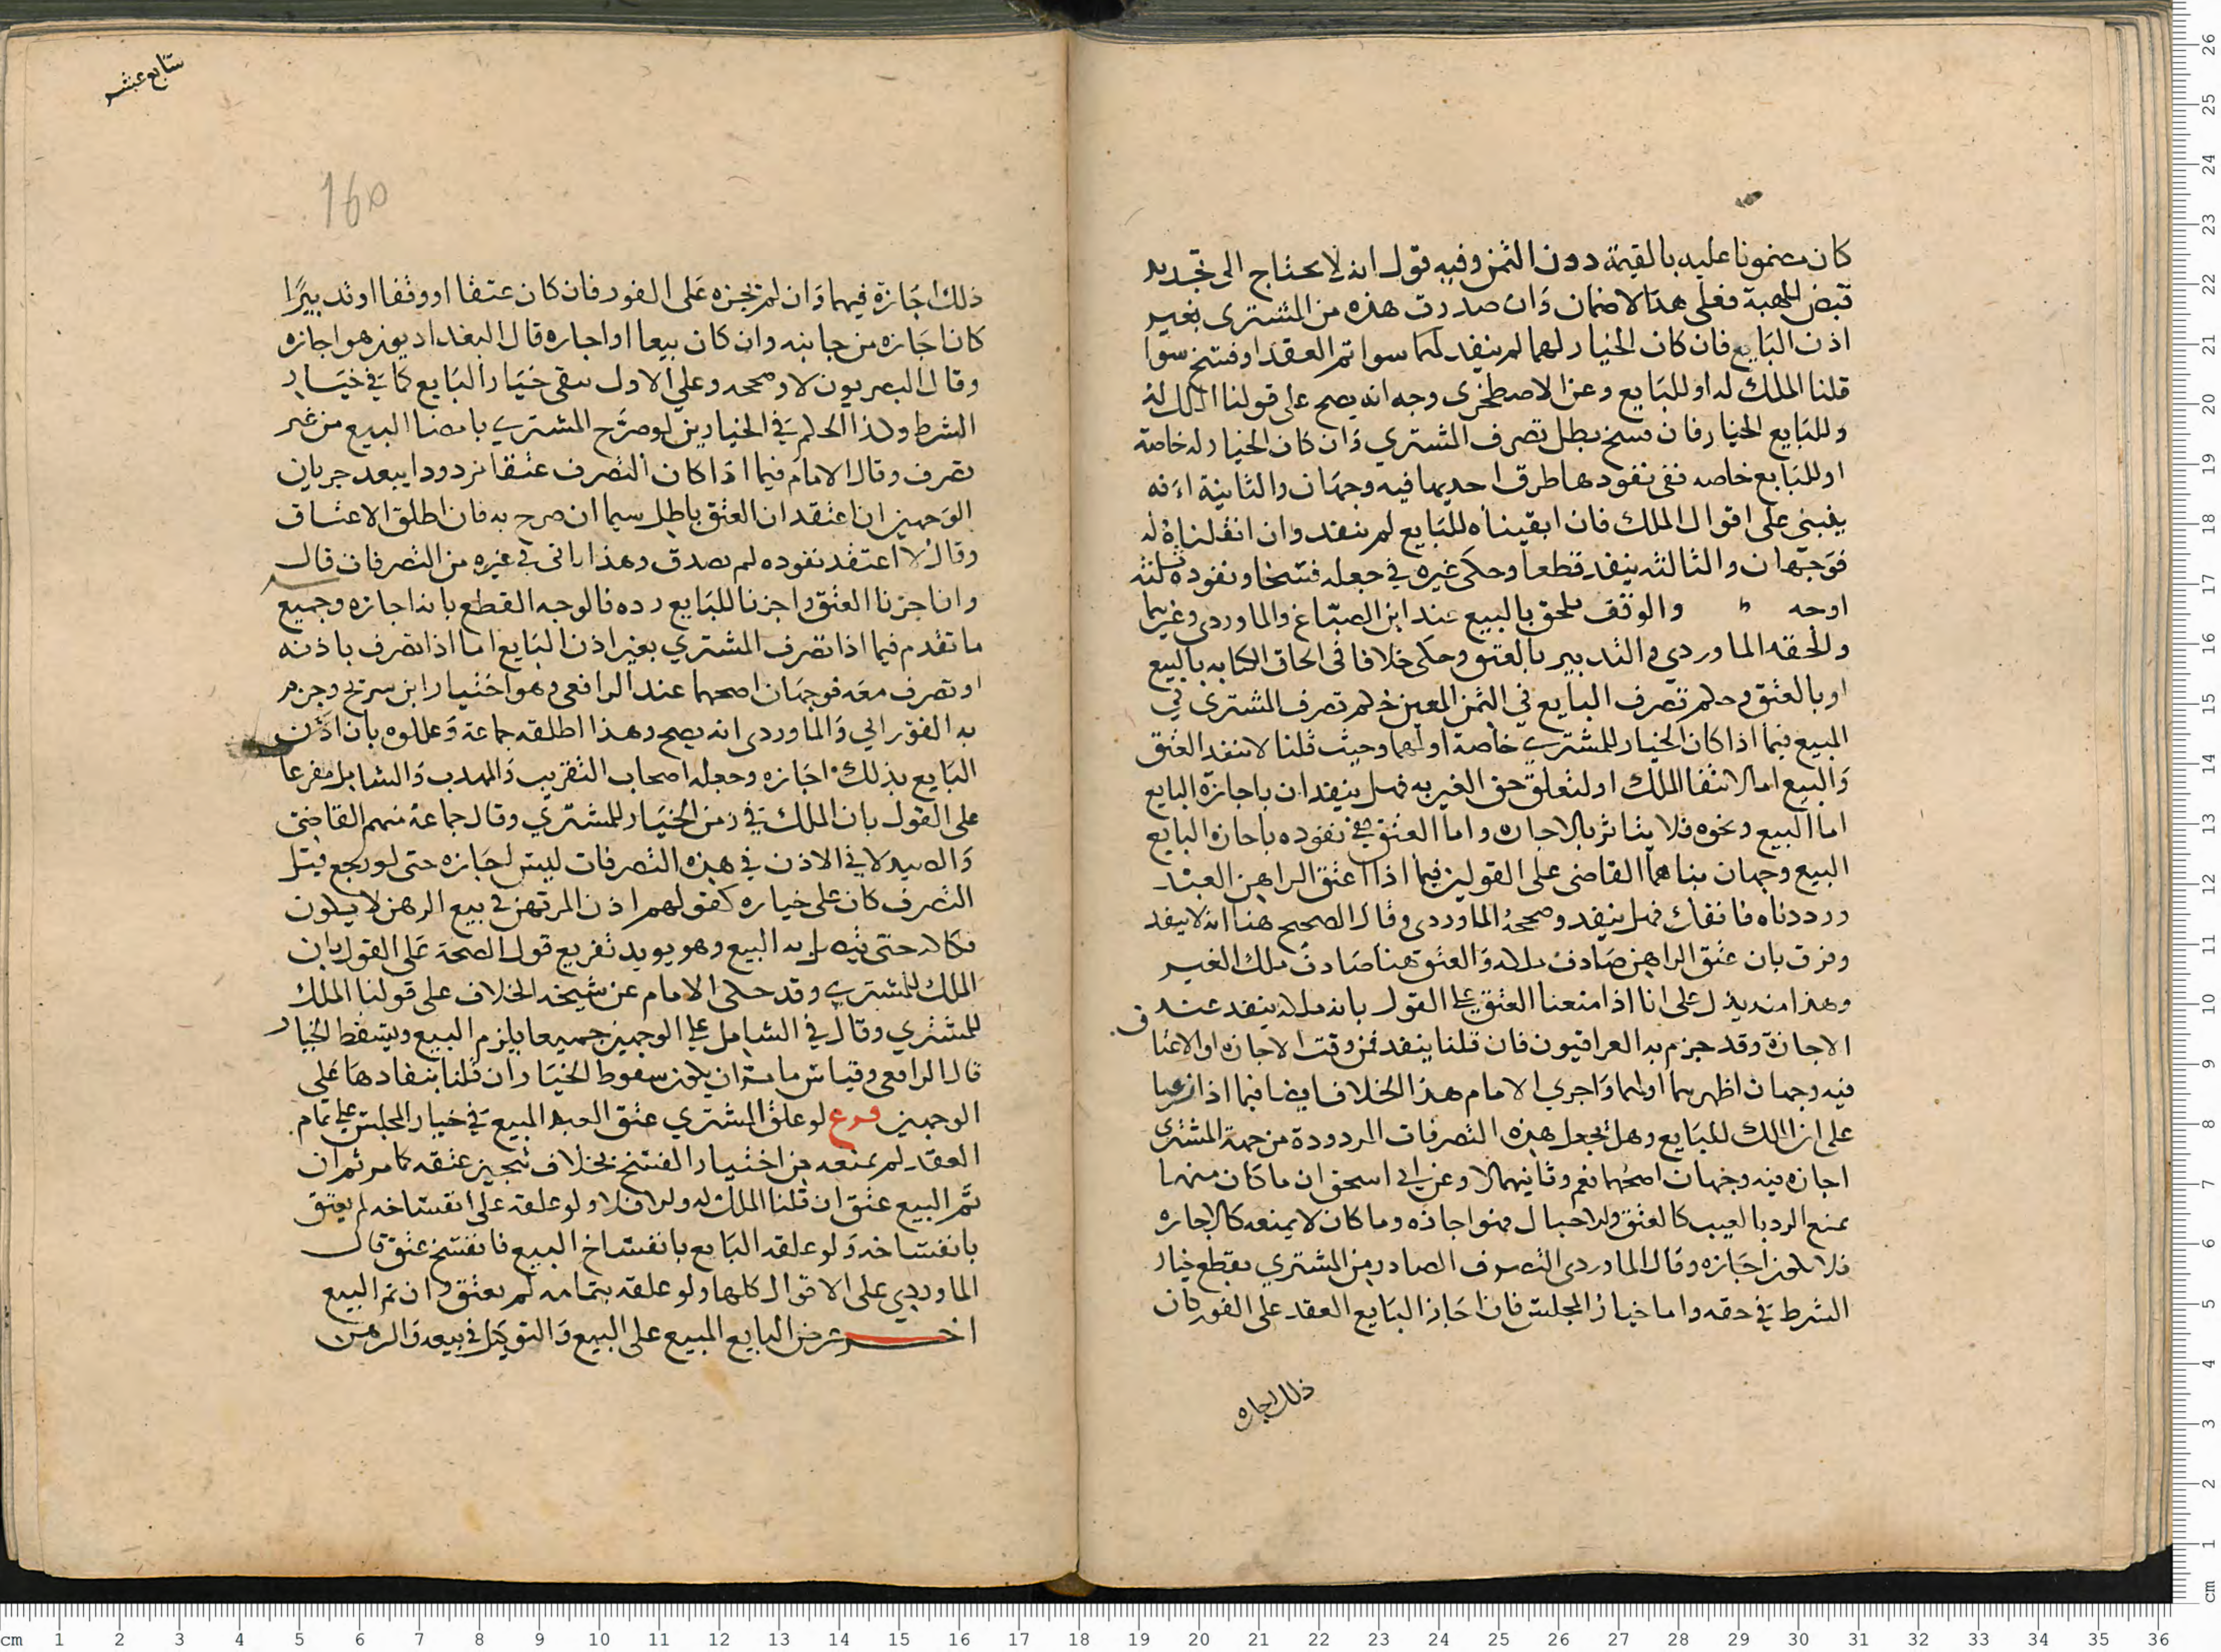 كان مضمونا عليه بالقيمة دون الثمن وفيه قول انه لا يحتاج الى تجديد
قبض للهبة فعلى هذا لا ضمان وان صدرت هذه من المشترى بغير
اذن البايع فان كان الخيار لهما لم ينفد لهما سوا تم العقد او فسخ سوا
قلنا الملك له او للبايع وعن الاصطخرى وجه انه يصح على قولنا الملك له
وللبايع الخيار فان فسخ بطل تصرف المشتري وان كان الخيار له خاصة
او للبايع خاصه ففى نفودها طرق احديها فيه وجهان والثانية انه
يبني على اقوال الملك فان ابقيناه للبايع لم ينفد وان انقلناه له
فوجهان والثالثه ينفد قطعا وحكى غيره في جعله فسخا ونفوده ثلثه
اوجه والوقف يلحق بالبيع عند ابن الصباغ والماوردى وغيرهما
والحقه الماوردي والتدبير بالعتق وحكى خلافا فى الحاق الكتابه بالبيع
او بالعتق وحكم تصرف البايع في الثمن المعين حكم تصرف المشترى في
المبيع فيما اذا كان الخيار للمشتري خاصة او لهما وحيث قلنا لا ينفد العتق
والبيع اما لانتفا الملك او لتعلق حق الغير به فهل ينفدان باجازة البايع
اما البيع ونحوه فلا يتاثر بالاجازه واما العتق ففي نفوده باجازه البايع
البيع وجهان بناهما القاضى على القولين فيما اذا اعتق الراهن العبد
ورددناه فانفك فهل ينفد وصححه الماوردى وقال الصحيح هنا انه لا ينفد
وفرق بان عتق الراهن صادف ملكه والعتق هنا صادف ملك الغير
وهذا منه يدل على انا اذا منعنا العتق على القول بانه ملكه ينفد عند
الاجازة وقد جزم به العراقيون فان قلنا ينفد فمن وقت الاجازه او الاعتا ق
فيه وجهان اظهرهما اولهما واجري الامام هذا الخلاف ايضا فيما اذا فرعنا
على ان الملك للبايع وهل نجعل هذه التصرفات المردودة من جهة المشترى
اجازه فيه وجهان اصحهما نعم وثانيهما لا وعن ابى اسحق ان ما كان منها
يمنع الرد بالعيب كالعتق والاحبال فهو اجازه وما كان لا يمنعه كالاجاره
فلا يكون اجازه وقال الماوردى التصرف الصادر من المشتري يقطع خيار
الشرط في حقه واما خيار المجلس فان اجاز البايع العقد على الفور كان
ذلك اجازه
سابع عشر
160
ذلك اجازة فيهما وان لم يجزه على الفور فان كان عتقا او وقفا او تدبيرا
كان اجازه من جانبه وان كان بيعا او اجاره قال البغداديون هو اجازه
وقال البصريون لا وصححه وعلى الاول يبقى خيار البايع كما في خيار
الشرط وكذا الحكم في الخيارين لو صرح المشترى بامضا البيع من غير
تصرف وقال الامام فيما اذا كان التصرف عتقا مردودا يبعد جريان
الوجهين ان اعتقد ان العتق باطل سيما ان صرح به فان اطلق الاعتاق
وقال لا اعتقد نفوده لم يصدق وهذا ياتى في غيره من التصرفات قال
وان اجزنا العتق واجزنا للبايع رده فالوجه القطع بانه اجازه وجميع
ما تقدم فيما اذا تصرف المشتري بغير اذن البايع اما اذا تصرف باذنه
او تصرف معه فوجهان اصحهما عند الرافعى وهو اختيار ابن سريج وجزم
به الفوراني والماوردى انه يصح وهذا اطلقه جماعة وعللوه بان اذن
البايع بذلك اجازه وجعله اصحاب التقريب والمهدب والشامل مفرعا
على القول بان الملك في زمن الخيار للمشترى وقال جماعة منهم القاضى
والصيدلاني الاذن في هذه التصرفات ليس اجازه حتى لو رجع قبل
التصرف كان على خياره كقولهم اذن المرتهن في بيع الرهن لا يكون
فكاله حتى يتصل به البيع وهو يويد تفريع قول الصحة على القول بان
الملك للمشترى وقد حكى الامام عن شيخه الخلاف على قولنا الملك
للمشتري وقال في الشامل على الوجهين جميعا يلزم البيع ويسقط الخيار
قال الرافعى وقياس ما سبق ان يكون سقوط الخيار ان قلنا بنفادها على
الوجهين فرع لو علق المشترى عتق العبد المبيع في خيار المجلس على تمام
العقد لم يمنعه من اختيار الفسخ بخلاف تنجيز عتقه كما مر ثم ان
تم البيع عتق ان قلنا الملك له والا فلا ولو علقه على انفساخه لم يعتق
بانفساخه ولو علقه البايع بانفساخ البيع فانفسخ عتق قال
الماوردي على الاقوال كلها ولو علقه بتمامه لم يعتق وان تم البيع
اخر عرض البايع المبيع على البيع والتوكيل في بيعه والرهن